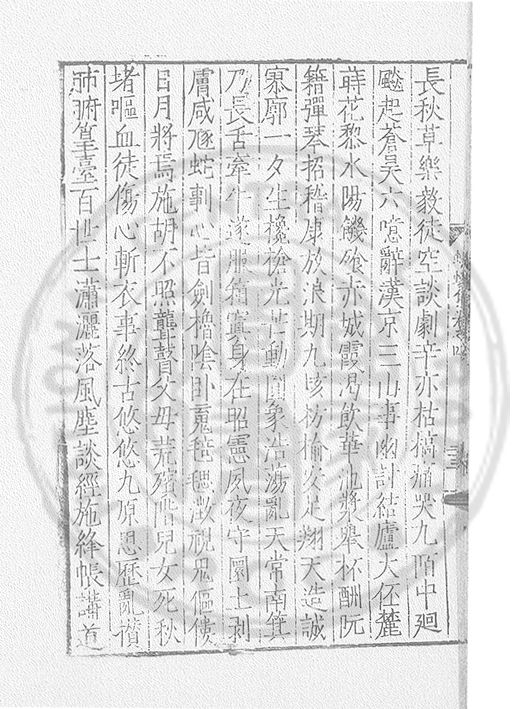 長秋草樂教徒空談劇辛亦枯槁痛哭九陌中廻
飈起蒼昊六噫辭漢京三山事幽討結廬大伾麓
蒔花黎水陽饑飱赤城霞渴飲華池漿舉杯酬阮
籍彈琴招稽康放浪期九垓枋榆洨足翔天造誠
寥廓一夕生欃槍光芒動圓象浩蕩亂天常南箕
乃長舌牽牛遂服箱寘身在昭憲夙夜守圜土剥
膚咸虺蛇剚心皆劍櫓陰卧覓毬毬溦視鬼傴僂
日月將焉施胡不照聾瞽父母荒殯階兒女死秋
堵嘔血徒傷心斬衣事終古悠悠九原思歷亂攢
肺腑篁臺百世士瀟灑落風塵談經施絳帳講道